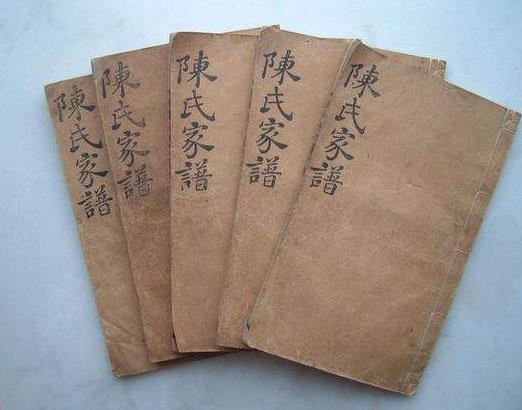 陳氏家譜
陳氏家譜
陳氏家譜
陳氏家譜
陳氏家譜